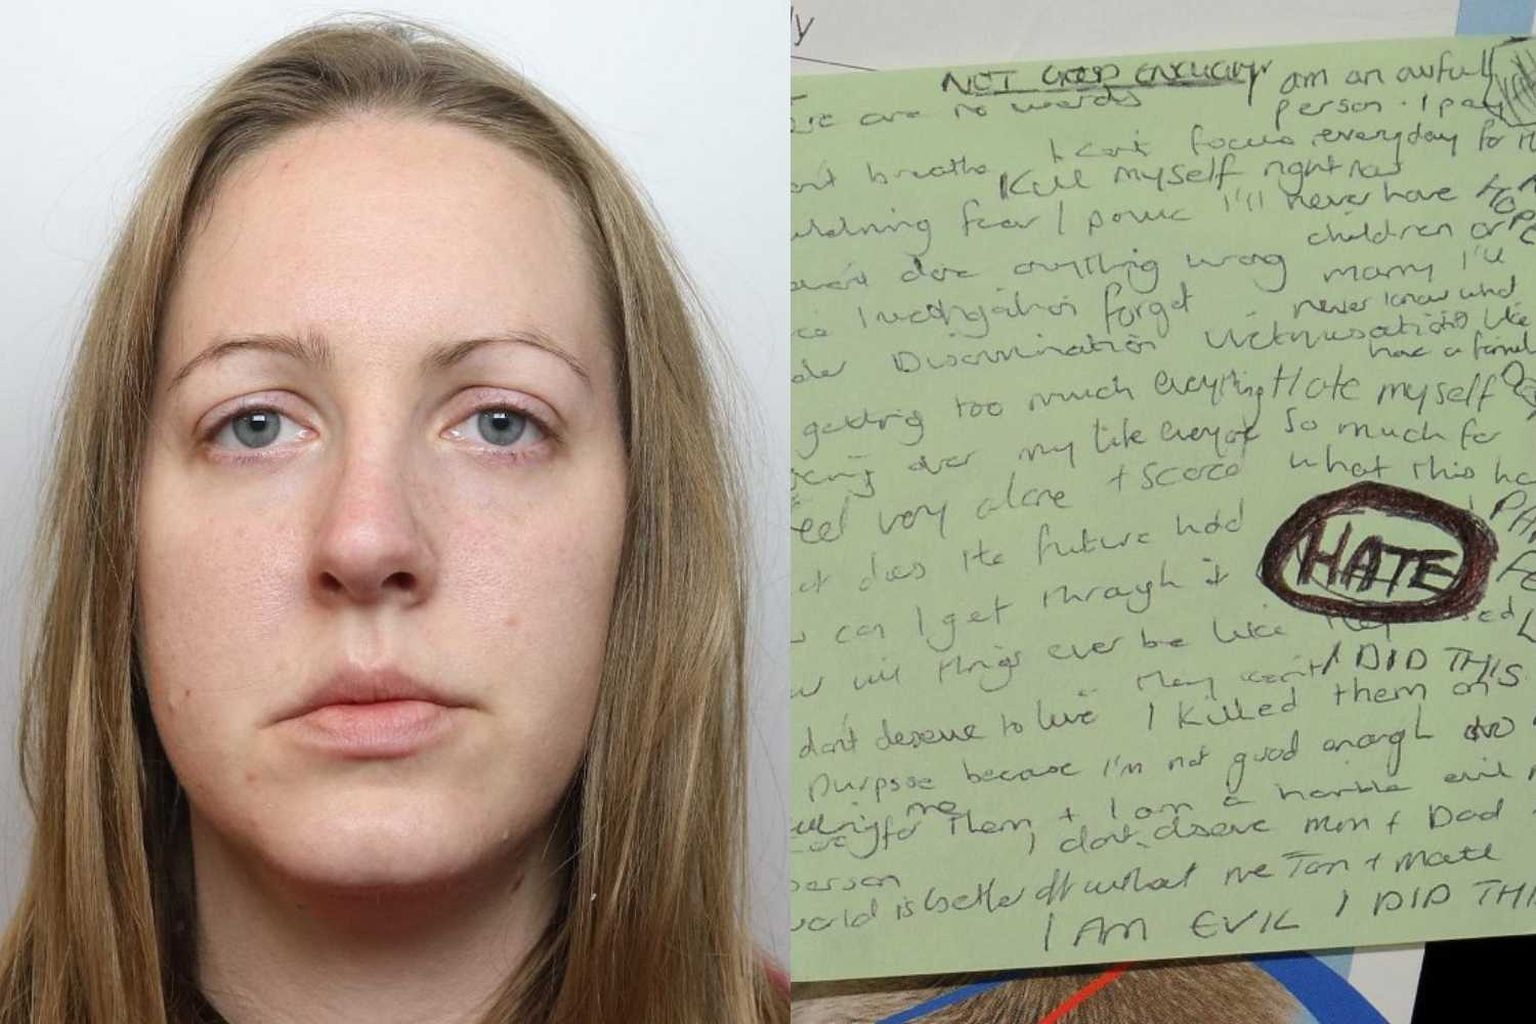 ly
NOT GOOD ENOUGH
I am an awful
are no words
person. I pay
can't breathe
I can't focus
everyday for
Kill myself right now
overwhelming fear / panic
I'll never have
HOPE
children or
haven't done anything wrong
marry I'll
Police Investigation forget
never know what
Slander Discrimination Victimisation
like
have a family
getting too much everything
Hate myself
taking over my life everyone
so much for
feel very alone + scared
what this has
PANIC
What does the future hold
HATE
FEAR
How can I get through it
How will things ever be like they used
they won't
I DID THIS
don't deserve to live
I killed them on
purpose because I'm not good enough
for them + I am a horrible evil
person
I don't deserve mum + Dad
world is better off without me Tom + Matt
I AM EVIL I DID THIS